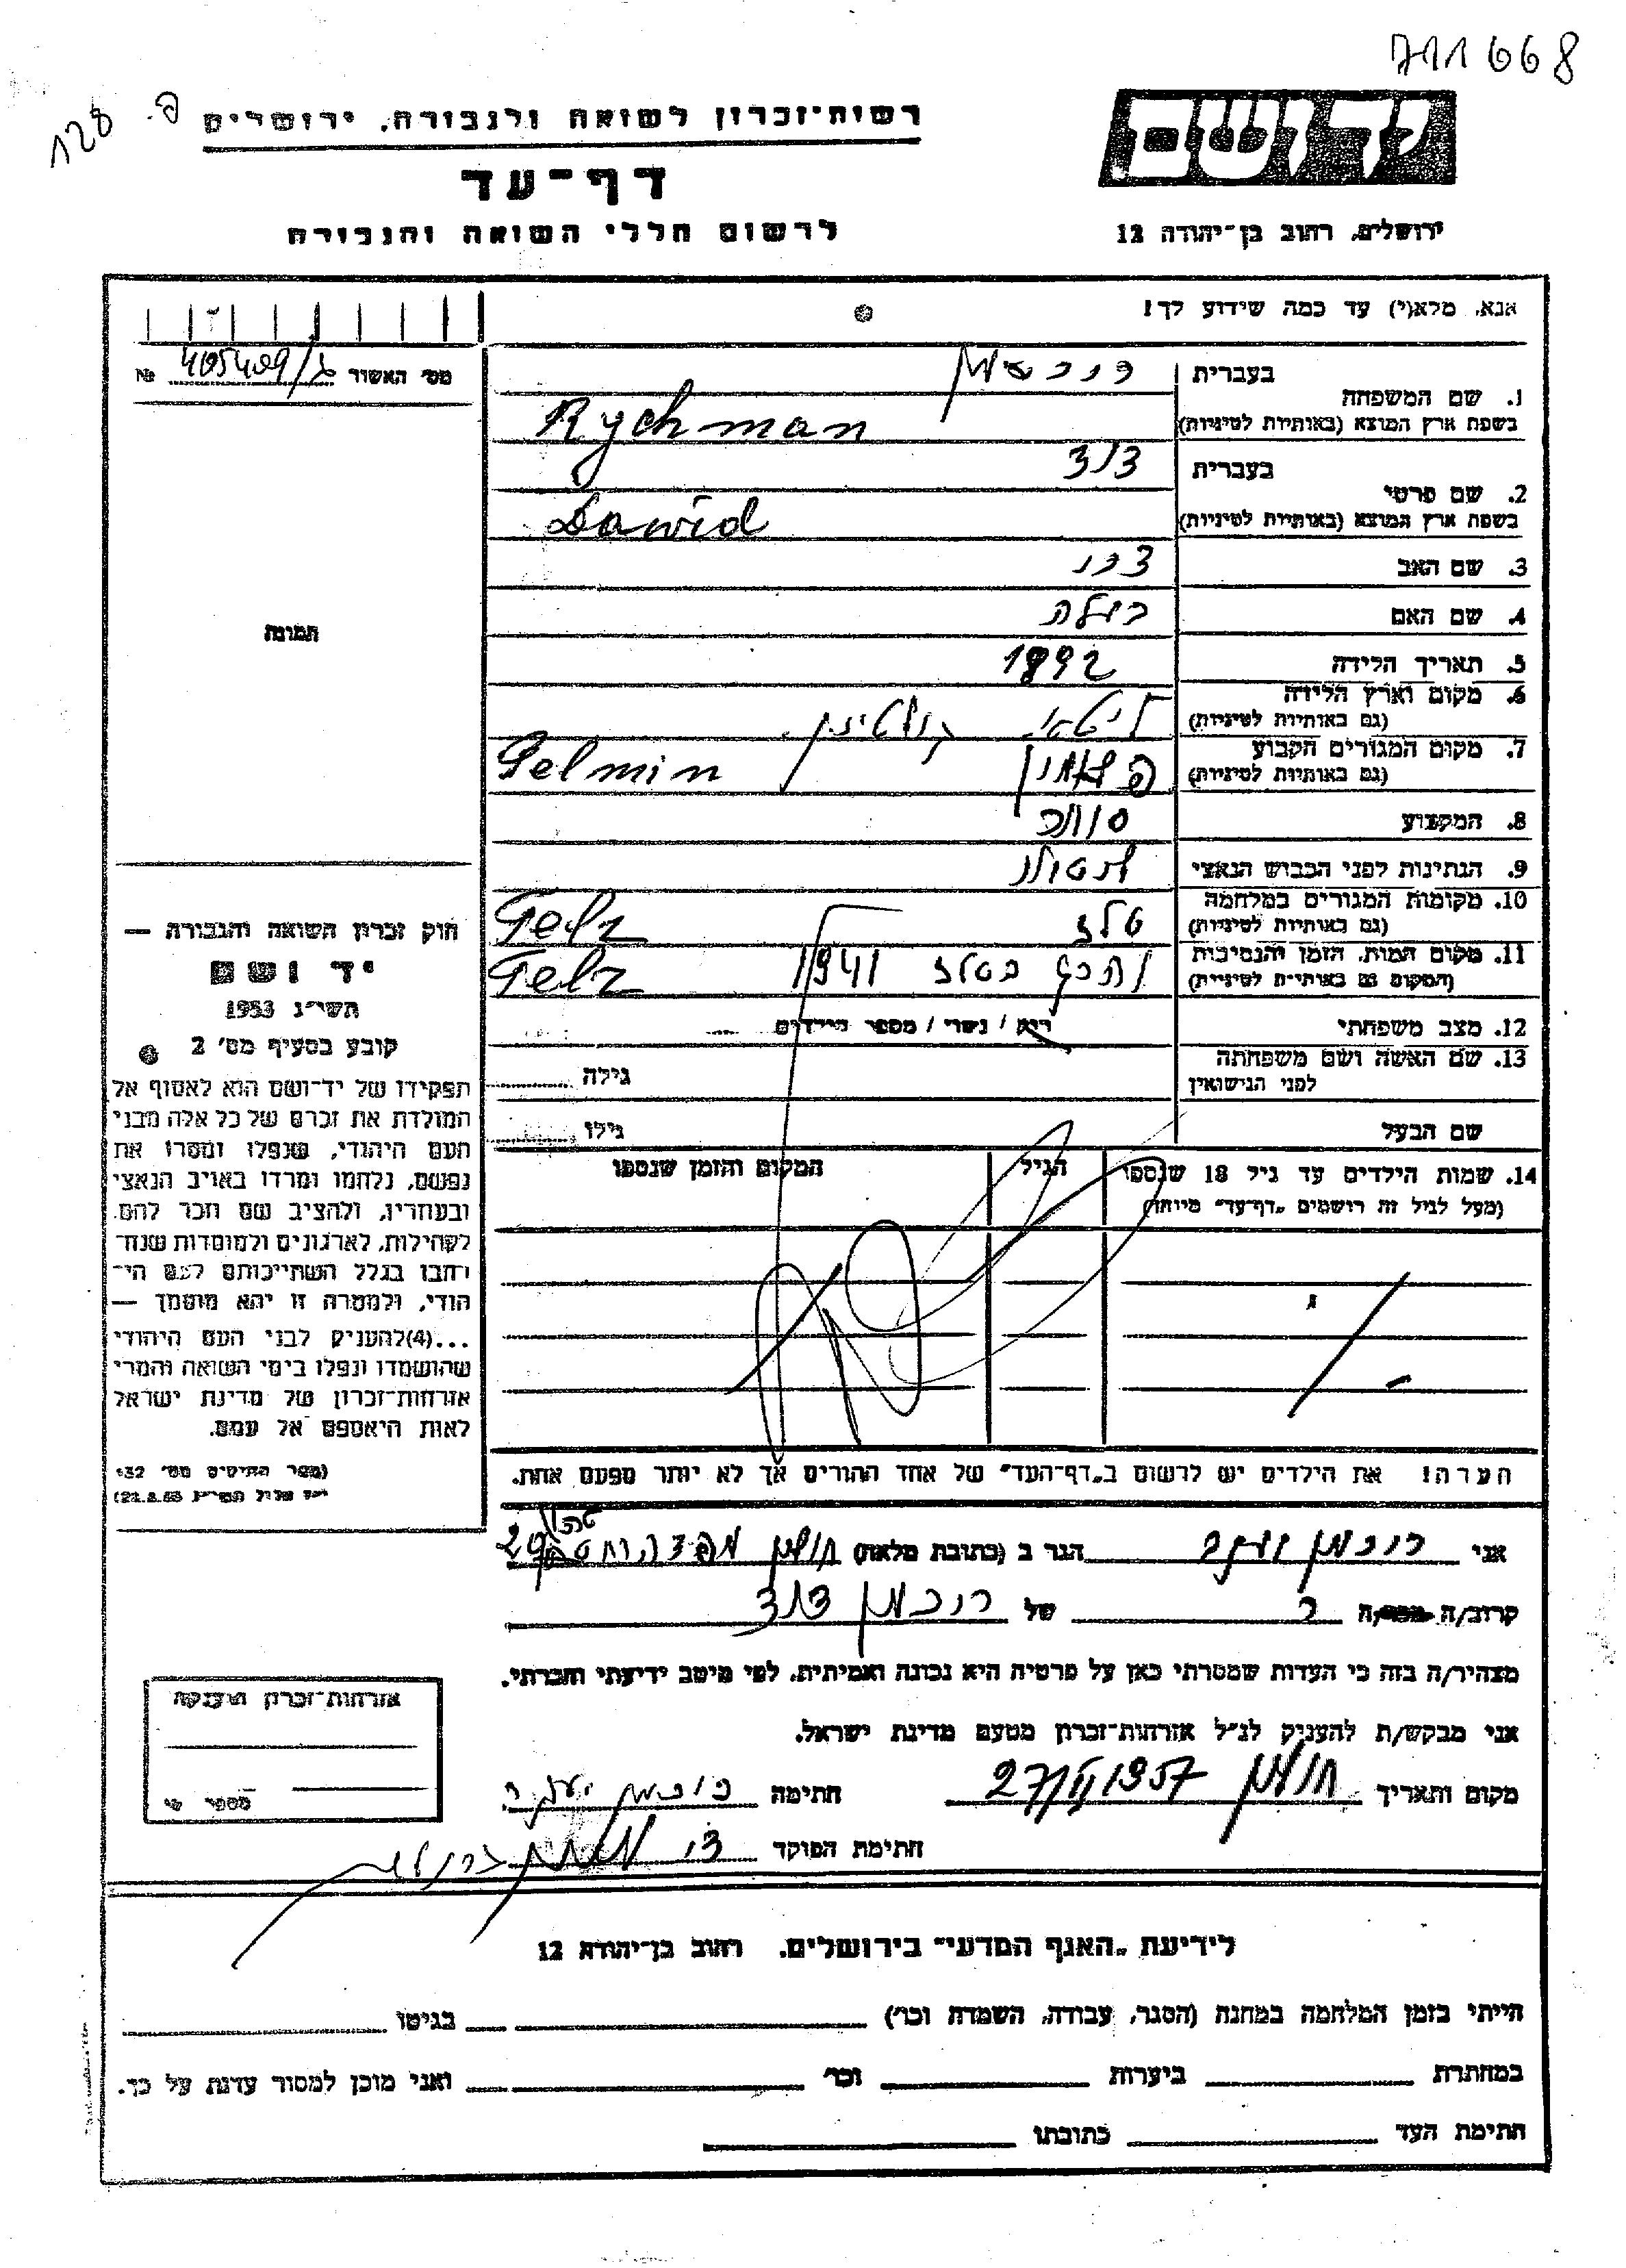 711668
128 -פ
רשות־זכרון לשואה ולגבורה, ירושלים
יד ושם
דף־עד
לרשום חללי השואה והגבורה
ירושלים, רחוב בן־יהודה 12
אנא, מלא(י) עד כמה שידוע לך!
מס׳ האשור 405409/ג №
1. שם המשפחה
בעברית רוכמאן
בשפת ארץ המוצא (באותיות לטיניות) Rychman
2. שם פרטי
בעברית דוד
בשפת ארץ המוצא (באותיות לטיניות) Dawid
3. שם האב
4. שם האם
5. תאריך הלידה 1892
6. מקום וארץ הלידה ליטא
(גם באותיות לטיניות)
7. מקום המגורים הקבוע Pelmin
(גם באותיות לטיניות)
8. המקצוע סוחר
9. הנתינות לפני הכבוש הנאצי
10. מקומות המגורים במלחמה טלז Telz
(גם באותיות לטיניות)
11. מקום המות, הזמן והנסיבות נהרג בטלז 1941 Telz
(המקום גם באותיות לטיניות)
12. מצב משפחתי רוק / נשוי / מספר הילדים
13. שם האשה ושם משפחתה גילה
לפני הנישואין
שם הבעל גילו
14. שמות הילדים עד גיל 18 שנספו הגיל המקום והזמן שנספו
(מעל לגיל זה רושמים „דף־עד״ מיוחד)
הערה! את הילדים יש לרשום ב„דף־העד״ של אחד ההורים אך לא יותר מפעם אחת.
תמונה
חוק זכרון השואה והגבורה —
יד ושם
תשי״ג 1953
קובע בסעיף מס׳ 2
תפקידו של יד־ושם הוא לאסוף אל
המולדת את זכרם של כל אלה מבני
העם היהודי, שנפלו ומסרו את
נפשם, נלחמו ומרדו באויב הנאצי
ובעוזריו, ולהציב שם וזכר להם,
לקהילות, לארגונים ולמוסדות שנח־
רבו בגלל השתייכותם לעם הי־
הודי, ולמטרה זו יהא מוסמך —
...(4)להעניק לבני העם היהודי
שהושמדו ונפלו בימי השואה והמרי
אזרחות־זכרון של מדינת ישראל
לאות היאספם אל עמם.
(ספר החוקים מס׳ 132
אני רוכמן יעקב הגר ב (כתובת מלאה) חולון
קרוב/ה של רוכמן דוד
מצהיר/ה בזה כי העדות שמסרתי כאן על פרטיה היא נכונה ואמיתית, לפי מיטב ידיעתי והכרתי.
אני מבקש/ת להעניק לנ״ל אזרחות־זכרון מטעם מדינת ישראל.
מקום ותאריך חולון 27/VI 1957 חתימה רוכמן יעקב
חתימת הפוקד
אזרחות־זכרון הוענקה
מספר
לידיעת „האגף המדעי״ בירושלים, רחוב בן־יהודה 12
הייתי בזמן המלחמה במחנה (הסגר, עבודה, השמדה וכו׳) בגיטו
במחתרת ביערות וכו׳ ואני מוכן למסור עדות על כך.
חתימת העד כתובתו